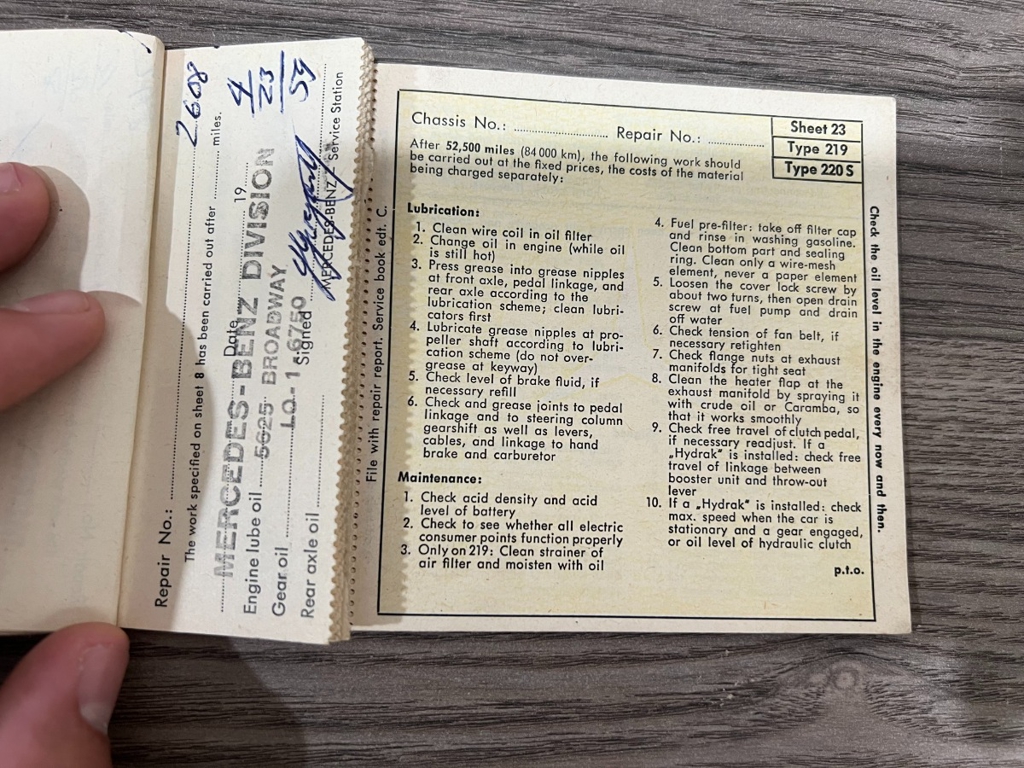 Repair No.:
2608
The work specified on sheet 8 has been carried out after miles.
4/23/59
Date 19
MERCEDES-BENZ DIVISION
Engine lube oil
5625 BROADWAY
Gear oil
LO-1-6750
Signed
MERCEDES-BENZ Service Station
Rear axle oil
File with repair report. Service book edt. C.
Chassis No.: Repair No.:
Sheet 23
Type 219
Type 220 S
After 52,500 miles (84 000 km), the following work should
be carried out at the fixed prices, the costs of the material
being charged separately:
Lubrication:
1. Clean wire coil in oil filter
2. Change oil in engine (while oil
is still hot)
3. Press grease into grease nipples
at front axle, pedal linkage, and
rear axle according to the
lubrication scheme; clean lubri-
cators first
4. Lubricate grease nipples at pro-
peller shaft according to lubri-
cation scheme (do not over-
grease at keyway)
5. Check level of brake fluid, if
necessary refill
6. Check and grease joints to pedal
linkage and to steering column
gearshift as well as levers,
cables, and linkage to hand
brake and carburetor
Maintenance:
1. Check acid density and acid
level of battery
2. Check to see whether all electric
consumer points function properly
3. Only on 219: Clean strainer of
air filter and moisten with oil
4. Fuel pre-filter: take off filter cap
and rinse in washing gasoline.
Clean bottom part and sealing
ring. Clean only a wire-mesh
element, never a paper element
5. Loosen the cover lock screw by
about two turns, then open drain
screw at fuel pump and drain
off water
6. Check tension of fan belt, if
necessary retighten
7. Check flange nuts at exhaust
manifolds for tight seat
8. Clean the heater flap at the
exhaust manifold by spraying it
with crude oil or Caramba, so
that it works smoothly
9. Check free travel of clutch pedal,
if necessary readjust. If a
„Hydrak" is installed: check free
travel of linkage between
booster unit and throw-out
lever
10. If a „Hydrak" is installed: check
max. speed when the car is
stationary and a gear engaged,
or oil level of hydraulic clutch
p.t.o.
Check the oil level in the engine every now and then.